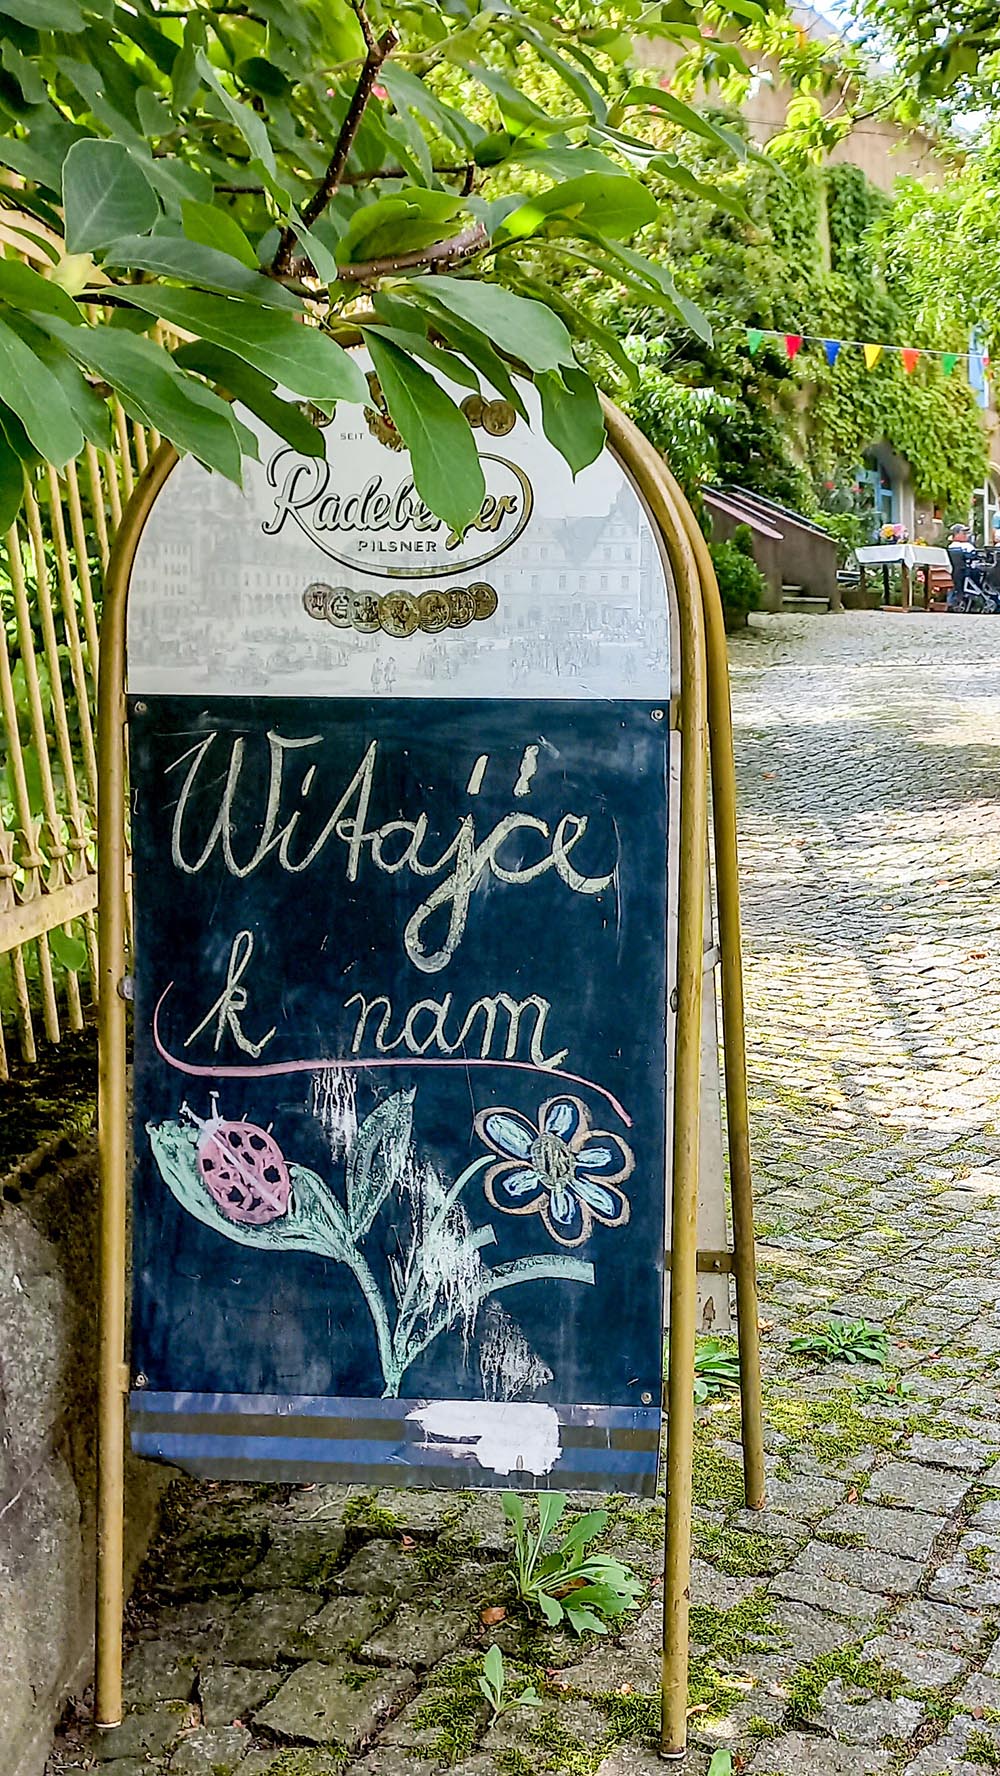 SEIT
Radeberger
PILSNER
Witajće
k nam